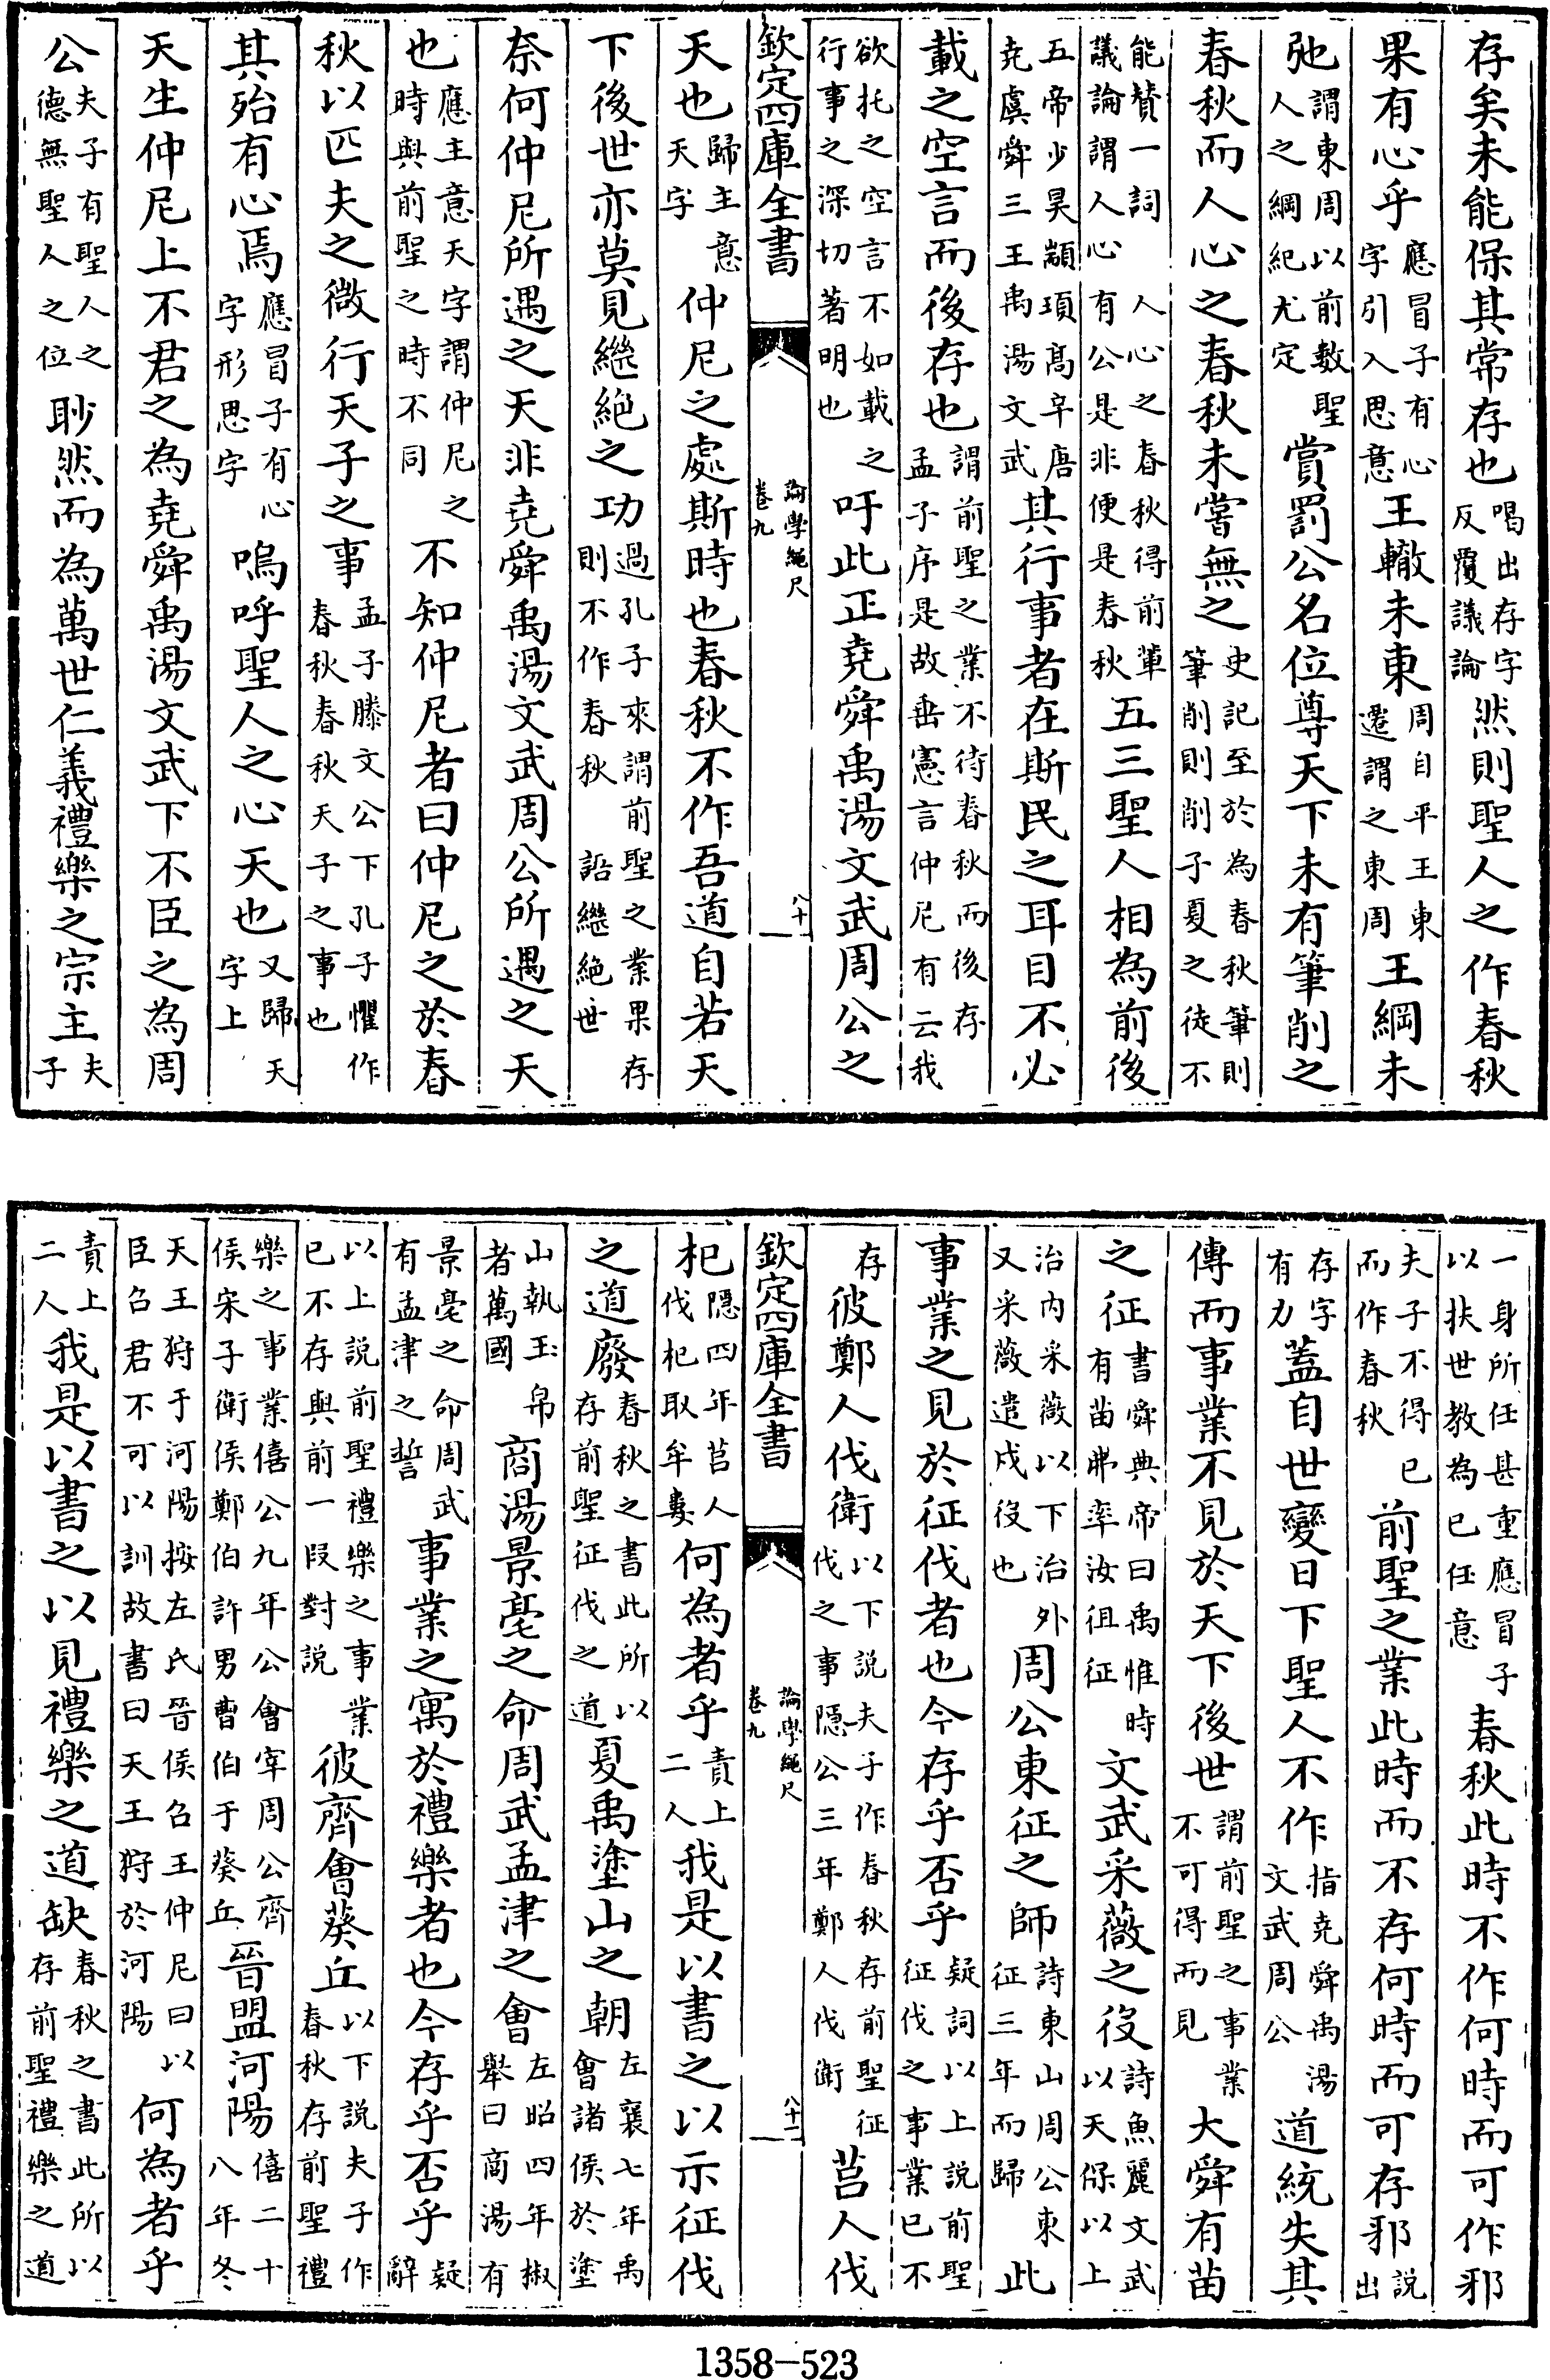 存矣未能保其常存也喝出存字反覆議論然則聖人之作春秋
果有心乎應冒子有心字引入思意王轍未東周自平王東遷謂之東周王綱未
弛謂東周以前數聖人之綱紀尤定賞罰公名位尊天下未有筆削之
春秋而人心之春秋未嘗無之史記至於為春秋筆則筆削則削子夏之徒不
能贊一詞人心之春秋得前輩議論謂人心有公是非便是春秋五三聖人相為前後
五帝少昊顓頊高辛唐堯虞舜三王禹湯文武其行事者在斯民之耳目不必
載之空言而後存也謂前聖之業不待春秋而後存孟子序是故垂憲言仲尼有云我
欲托之空言不如載之行事之深切著明也吁此正堯舜禹湯文武周公之
欽定四庫全書 論學繩尺 卷九 八十一
天也歸主意天字仲尼之處斯時也春秋不作吾道自若天
下後世亦莫見繼絕之功過孔子來謂前聖之業果存則不作春秋詒繼絕世
奈何仲尼所遇之天非堯舜禹湯文武周公所遇之天
也應主意天字謂仲尼之時與前聖之時不同不知仲尼者曰仲尼之於春
秋以匹夫之微行天子之事孟子滕文公下孔子懼作春秋春秋天子之事也
其殆有心焉應冒子有心字形思字嗚呼聖人之心天也又歸天字上
天生仲尼上不君之為堯舜禹湯文武下不臣之為周
公夫子有聖人之德無聖人之位眇然而為萬世仁義禮樂之宗主夫子
一身所任甚重應冒子以扶世教為已任意春秋此時不作何時而可作邪
夫子不得已而作春秋前聖之業此時而不存何時而可存邪說出
存字有力蓋自世變日下聖人不作指堯舜禹湯文武周公道統失其
傳而事業不見於天下後世謂前聖之事業不可得而見大舜有苗
之征書舜典帝曰禹惟時有苗弗率汝徂征文武采薇之役詩魚麗文武以天保以上
治内采薇以下治外又采薇遣戍役也周公東征之師詩東山周公東征三年而歸此
事業之見於征伐者也今存乎否乎疑詞以上說前聖征伐之事業已不
存彼鄭人伐衛以下說夫子作春秋存前聖征伐之事隱公三年鄭人伐衛莒人伐
欽定四庫全書 論學繩尺 卷九 八十二
杞隱四年莒人伐杞取牟婁何為者乎責上二人我是以書之以示征伐
之道廢春秋之書此所以存前聖征伐之道夏禹塗山之朝左襄七年禹會諸侯於塗
山執玉帛者萬國商湯景亳之命周武孟津之會左昭四年椒舉曰商湯有
景亳之命周武有孟津之誓事業之寓於禮樂者也今存乎否乎疑辭
以上說前聖禮樂之事業已不存與前一段對說彼齊會葵丘以下說夫子作春秋存前聖禮
樂之事業僖公九年公會宰周公齊侯宋子衛侯鄭伯許男曹伯于葵丘晉盟河陽僖二十八年冬
天王狩于河陽按左氏晉侯召王仲尼曰以臣召君不可以訓故書曰天王狩於河陽何為者乎
責上二人我是以書之以見禮樂之道缺春秋之書此所以存前聖禮樂之道
1358-523